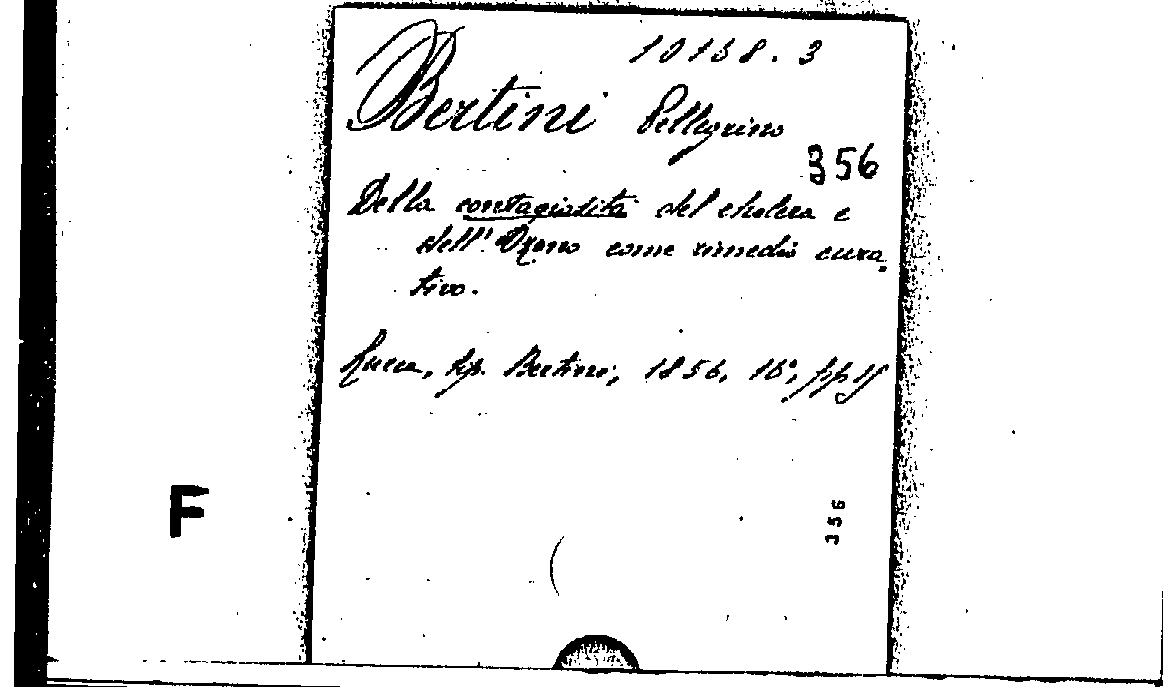 10138.3
Bertini Pellegrino
356
Della contagiosità del cholera e
dell'Ozono come rimedio cura-
tivo.
Lucca, tip. Bertini, 1856, 16°, pp
F
356